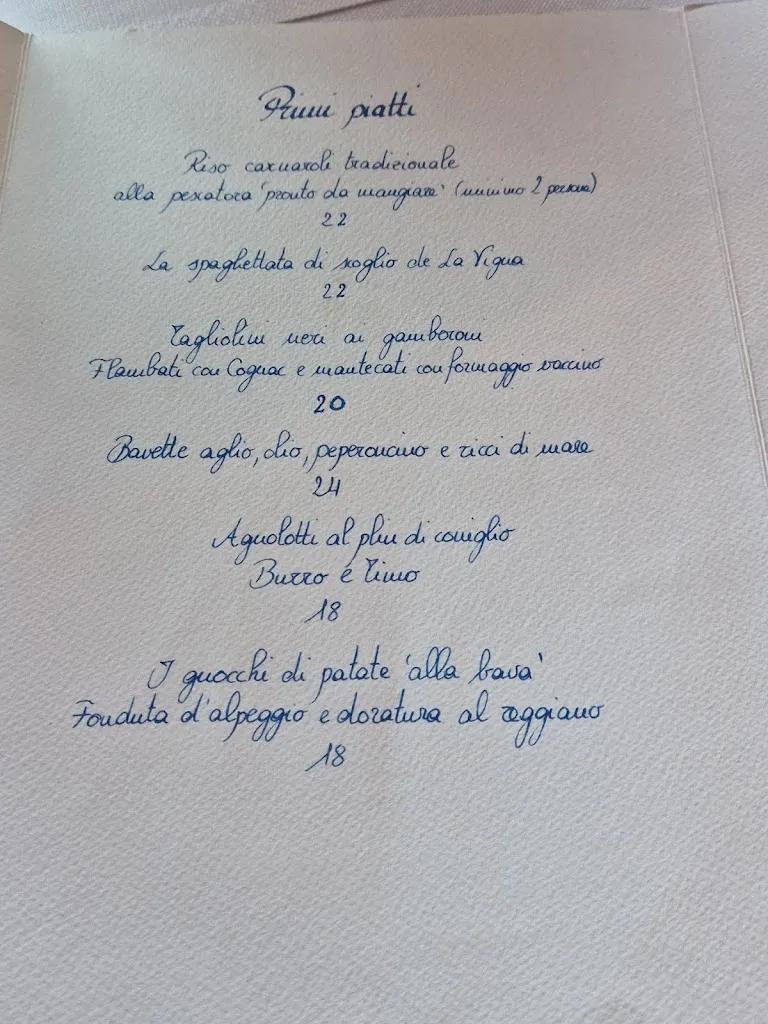 Primi piatti
Riso carnaroli tradizionale
alla pescatora 'pronto da mangiare' (minimo 2 persone)
22
La spaghettata di scoglio de La Vigna
22
Tagliolini neri ai gamberoni
Flambati con Cognac e mantecati con formaggio vaccino
20
Bavette aglio, olio, peperoncino e ricci di mare
24
Agnolotti al plin di coniglio
Burro e Timo
18
I gnocchi di patate 'alla bava'
Fonduta d'alpeggio e doratura al reggiano
18